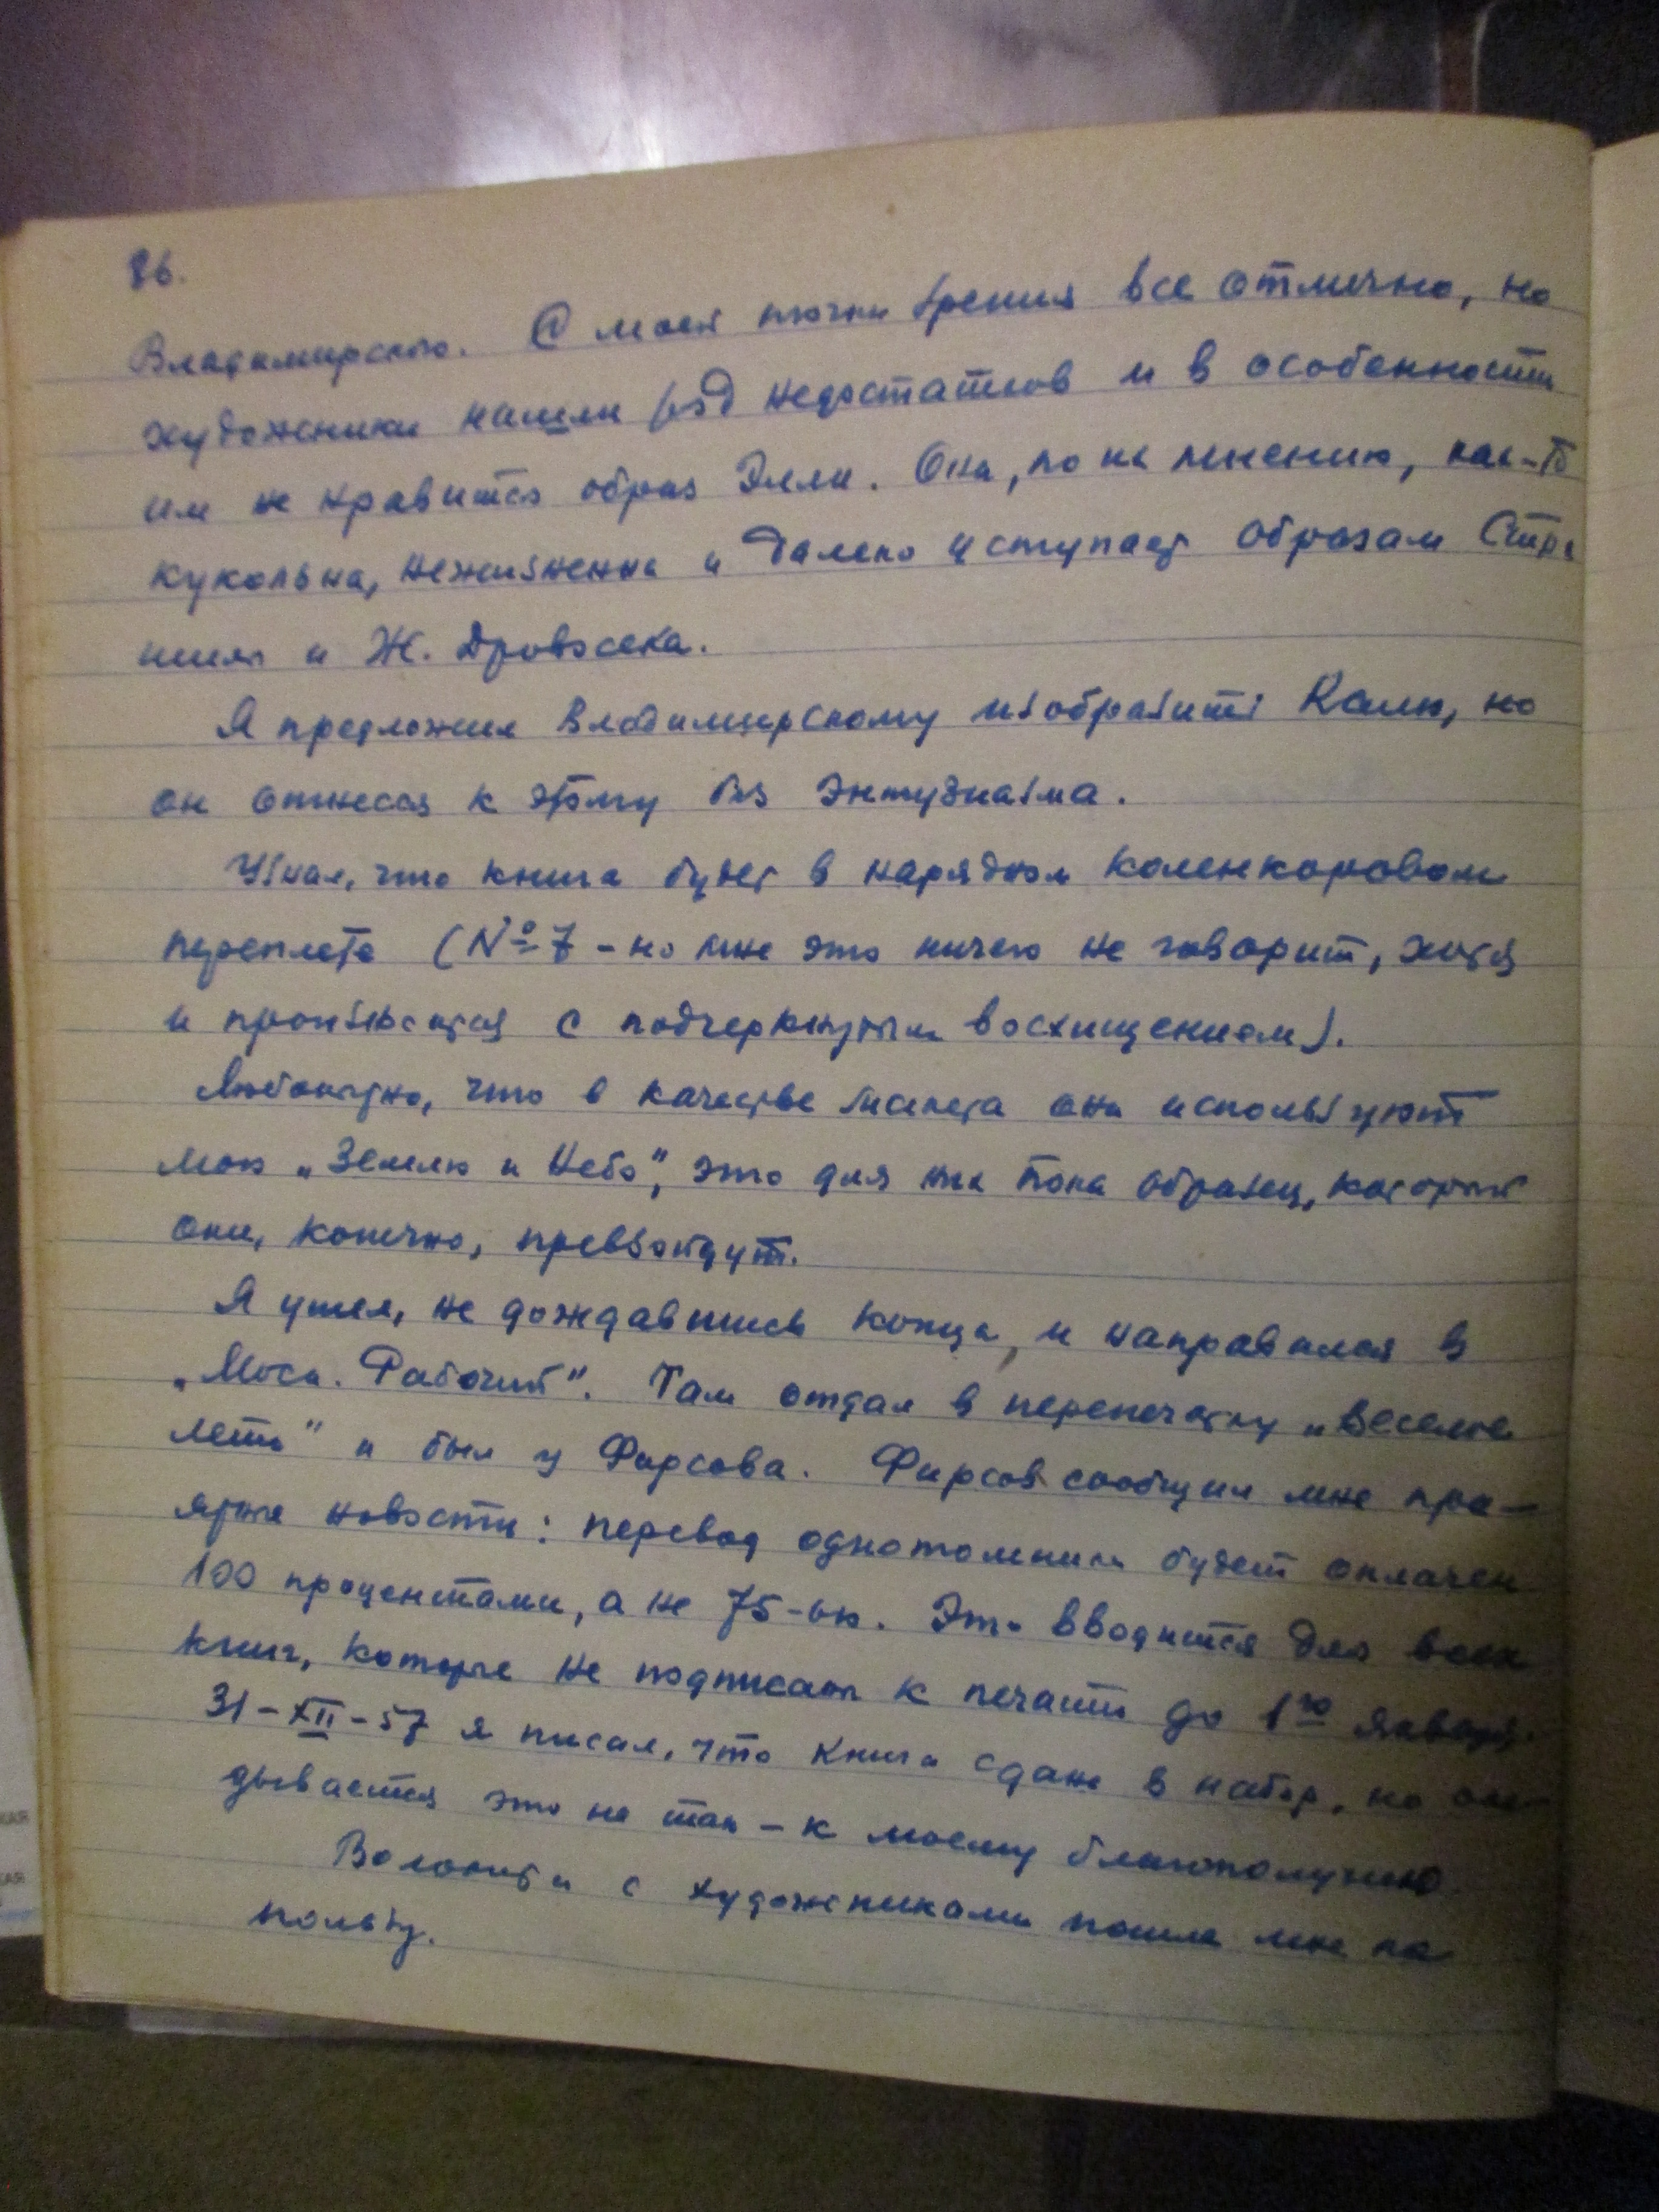 86.
Владимирского. С моей точки зрения все отлично, но
художники нашли ряд недостатков и в особенности
им не нравится образ Элли. Она, по их мнению, как-то
кукольна, нежизненна и далеко уступает образам Стра
шилы и Ж. Дровосека.
Я предложил Владимирскому изобразить Калю, но
он отнесся к этому без энтузиазма.
Узнал, что книга будет в нарядном коленкоровом
переплете (№ 7 - но мне это ничего не говорит, хотя
и произносится с подчеркнутым восхищением).
Любопытно, что в качестве макета они используют
мою „Землю и Небо", это для них пока образец, который
они, конечно, превзойдут.
Я ушел, не дождавшись конца, и направился в
„Моск. Рабочий". Там отдал в перепечатку „Веселое
лето" и был у Фирсова. Фирсов сообщил мне при-
ятные новости: перевод однотомника будет оплачен
100 процентами, а не 75-ью. Это вводится для всех
книг, которые не подписаны к печати до 1го января.
31-XII-57 я писал, что книга сдана в набор, но ока-
зывается это не так - к моему благополучию.
Волокита с художниками пошла мне на
пользу.